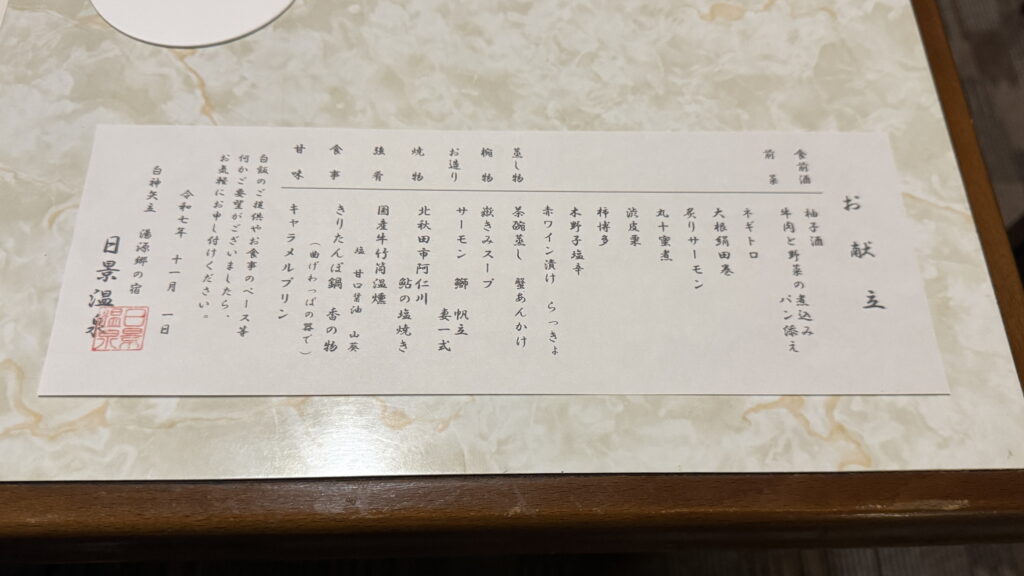 お献立
食前酒 柚子酒
前菜 牛肉と野菜の煮込み
パン添え
ネギトロ
大根絹田巻
炙りサーモン
丸十蜜煮
渋皮栗
柿博多
木野子塩辛
赤ワイン漬け らっきょ
蒸し物 茶碗蒸し 蟹あんかけ
椀物 嶽きみスープ
お造り サーモン 鰤 帆立
妻一式
焼物 北秋田市阿仁川
鮎の塩焼き
強肴 国産牛竹筒温燻
塩 甘口醤油 山葵
食事 きりたんぽ鍋 香の物
(曲げわっぱの器で)
甘味 キャラメルプリン
白飯のご提供やお食事のペース等
何かご要望がございましたら、
お気軽にお申し付けください。
令和七年 十一月 一日
白神矢立 湯源郷の宿
日景温泉
日景温泉